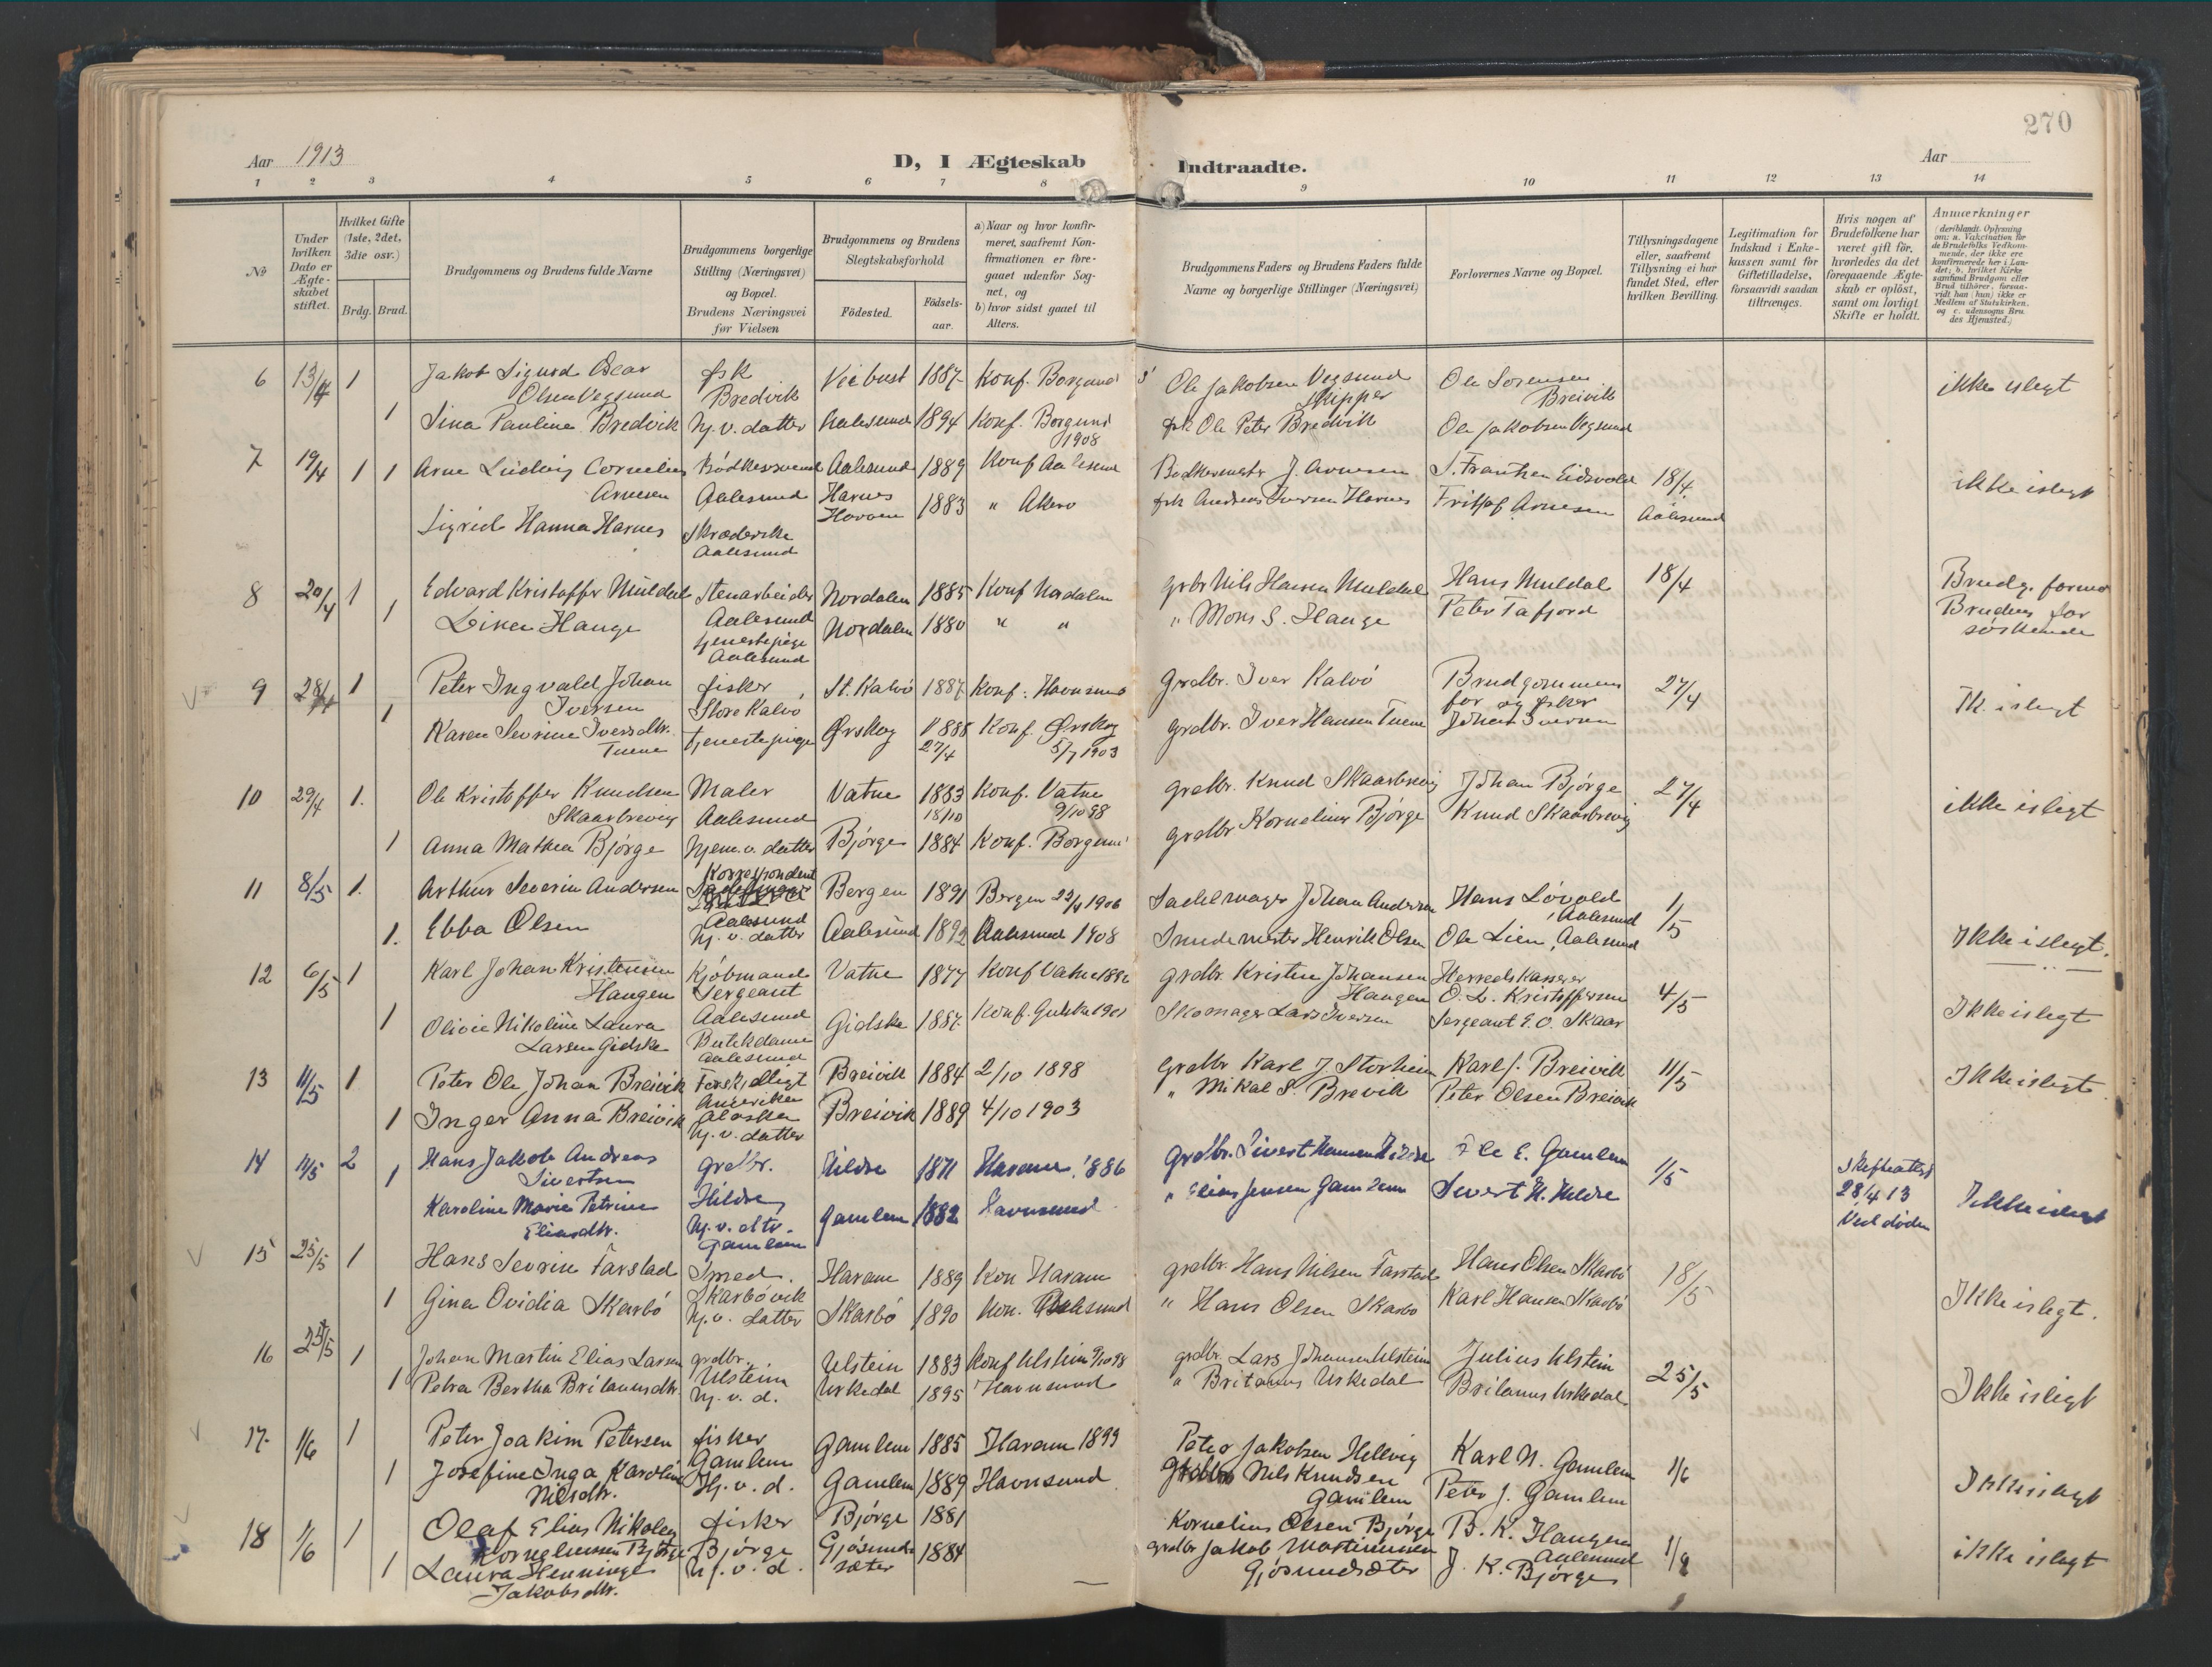 270
Aar 1913
D, I Ægteskab Indtraadte.
Aar
1 2 3 4 5 6 7 8 9 10 11 12 13 14
No
Under hvilken Dato er Ægteskabet stiftet.
Hvilket Gifte (1ste, 2det, 3die osv.)
Brdg. Brud.
Brudgommens og Brudens fulde Navne
Brudgommens borgerlige Stilling (Næringsvei) og Bopæl. Brudens Næringsvei før Vielsen
Brudgommens og Brudens Slegtskabsforhold
Födested. Födsels-aar.
a) Naar og hvor konfirmeret, saafremt Konfirmationen er foregaaet udenfor Sognet, og b) hvor sidst gaaet til Alters.
Brudgommens Faders og Brudens Faders fulde Navne og borgerlige Stillinger (Næringsvei)
Forlovernes Navne og Bopæl.
Tillysningsdagene eller, saafremt Tillysning ei har fundet Sted, efter hvilken Bevilling.
Legitimation for Indskud i Enkekassen samt for Giftetilladelse, forsaavidt saadan tiltrænges.
Hvis nogen af Brudefolkene har været gift før, hvorledes da det foregaaende Ægteskab er oplöst, samt om lovligt Skifte er holdt.
Anmærkninger (deriblandt Oplysning om: a. Vakcination for de Brudefolks Vedkommende, der ikke ere konfirmerede her i Landet; b. hvilket Kirkesamfund Brudgom eller Brud tilhörer, forsaavidt han (hun) ikke er Medlem af Statskirken, og c. udensogns Brudes Hjemsted.)
6 13/4 1 Jakob Sigurd Oscar Olsen Vegsund fsk Bredvik Veibust 1887 Konf. Borgund Ole Jakobsen Vegsund Skipper Ole Sorensen Breivik ikke islegt
1 Sina Pauline Bredvik hj. v. datter Aalesund 1894 Konf. Borgund 1908 fsk Ole Peter Bredvik Ole Jakobsen Vegsund
7 19/4 1 1 Arne Ludvig Cornelius Arnesen Bödkersvend Aalesund Aalesund 1889 Konf Aalesund Bødkermester J. Arnesen S. Frantzen Eidsvold 18/4 Aalesund ikke islegt
Sigrid Hanna Harnes Skræderske Aalesund Harnes 1883 " Akerø fsk Andreas Iversen Harnes Fritjof Arnesen
8 20/4 1 Edvard Kristoffer Muldal Stenarbeider Aalesund Nordalen 1885 Konf Nordalen grbr Nils Hansen Muldal Hans Muldal 18/4 Brudg. farmor Brudens far söskende
1 Line Hauge tjenestepige Aalesund Nordalen 1880 " " " Mons S. Hauge Peter Tafjord
9 28/4 1 Peter Ingvald Johan Iversen fisker Store Kalvø St. Kalvø 1887 Konf. Havnsund Grdbr. Iver Kalvø Brudgommens far og fisker Johan Iversen 27/4 Ik. islegt
1 Karen Sevrine Iversdtr. Tuene tjenestepige Ørskog 1888 27/4 Konf. Ørskog 5/7 1903 grdbr. Iver Hansen Tuene
10 29/4 1. Ole Kristoffer Knudsen Skaarbrevig Maler Aalesund Vatne 1883 18/10 Konf. Vatne 9/10 98 grdbr. Knud Skaarbrevig Johan Bjørge 27/4 ikke islegt
1 Anna Mathea Bjørge hjem. v. datter Bjørge 1884 Konf. Borgund grdbr Kornelius Bjørge Knud Skaarbrevig
11 8/5 1. Arthur Severin Andersen Korrespondent Aalesund Bergen 1891 Bergen 22/4 1906 Sadelmager Johan Andersen Hans Lövold, Aalesund 1/5 Ikke islegt.
1. Ebba Olsen hj. v. datter Aalesund 1892 Aalesund 1908 Smedemester Henrik Olsen Ole Lien, Aalesund
12 6/5 1 Karl Johan Kristensen Haugen Kjöbmand Sergeant Aalesund Vatne 1877 Konf Vatne 1892 grdbr. Kristen Johansen Haugen Herredskasserer O. L. Kristoffersen 4/5 Ikke islegt
1 Olivie Nikoline Laura Larsen Gidske Butikdame Aalesund Gidske 1887 Konf. Gidske 1901 Skomager Lars Iversen Sergeant E. O. Skaar
13 11/5 1 Peter Ole Johan Breivik Forskjelligt Amerika Alaska Breivik 1884 2/10 1898 grdbr Karl J. Storheim Karl J. Breivik 11/5 Ikke islegt
1 Inger Anna Breivik hj. v. datter Breivik 1889 4/10 1903 " Mikal S. Brevik Peter Olsen Breivik
14 11/5 2 Hans Jakob Andreas Sivertsen grdbr. Hildre Hildre 1871 Haram 1886 grdbr. Sivert Hansen Hildre Ole E. Gamlem 1/5 Skifteattest 28/4 13 Ved döden Ikke islegt
1 Karoline Marie Petrine Eliasdtr. hj. v. dtr. Gamlem Gamlem 1882 Havnsund " Elias Jensen Gamlem Sivert H. Hildre
15 25/5 1 Hans Sevrin Farstad Smed. Skarbövik Haram 1889 Kon Haram grdbr. Hans Nilsen Farstad Hans Olsen Skarbö 18/5 Ikke islegt.
1 Gina Ovidia Skarbö hj. v. datter Skarbö 1890 Kon. Aalesund " Hans Olsen Skarbö Karl Hansen Skarbö
16 25/5 1 Johan Martin Elias Larsen grdbr. Ulstein Ulstein 1883 Konf Ulstein 9/10 98 grdbr. Lars Johansen Ulstein Julius Ulstein 25/5 Ikke islegt
1 Petra Bertha Britanusdtr. hj. v. d. Urkedal 1895 Havnsund " Britanus Urkedal Britanus Urkedal
17. 1/6 1 Peter Joakim Petersen fisker Gamlem Gamlem 1885 Haram 1899 Peter Jakobsen Hellvig Karl N. Gamlem 1/6 Ikke islegt
1 Josefine Inga Karoline Nilsdtr. Hj. v. d. Gamlem 1889 Havnsund Nils Knudsen Gamlem Peter J. Gamlem
18 1/6 1 Olaf Elias Nikolay Korneliussen Bjørge fisker Bjørge Bjørge 1881 Kornelius Olsen Bjørge B. K. Haugen Aalesund ikke islegt
1 Laura Henninge Jakobsdtr. hj. v. d. Gjøsundsæter 1884 — grdbr Jakob Martinussen Gjøsundsæter J. K. Bjørge